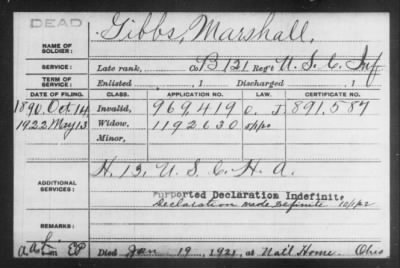 DEAD
NAME OF SOLDIER: Gibbs, Marshall.
SERVICE: Late rank, Co. B 121 Reg't U.S.C. Inf
TERM OF SERVICE: Enlisted , 1 Discharged , 1
DATE OF FILING. CLASS. APPLICATION NO. LAW. CERTIFICATE NO.
1890 Oct 14 Invalid, 969.419 J. 891.587
1922 May 13 Widow, 1192630
Minor,
ADDITIONAL SERVICES: H. 13, U.S.C.H.A.
Purported Declaration Indefinite
Declaration made definite
REMARKS:
Died Jan 19, 1921, at Nat'l Home. Ohio